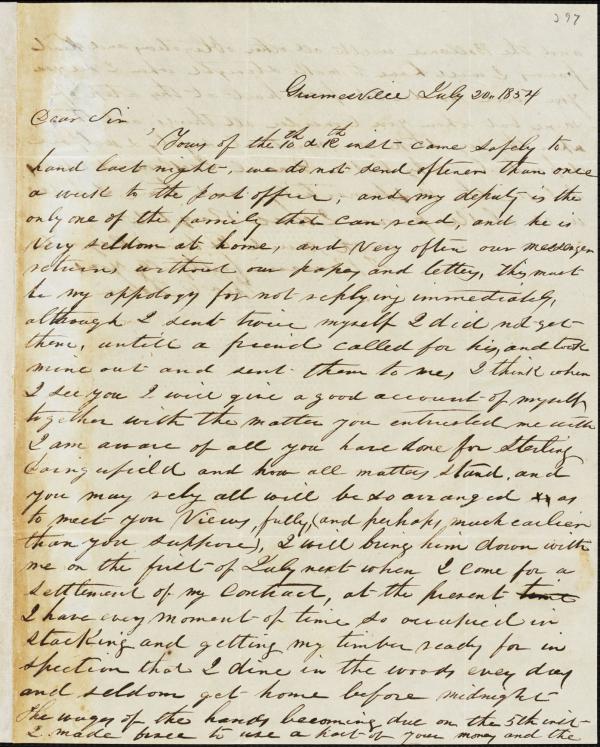 397
Grumesville July 20. 1854
Dear Sir
Yours of the 10th & 12th inst came safely to
hand last night, we do not send oftener than once
a week to the post office, and my deputy is the
only one of the family that can read, and he is
very seldom at home, and very often our messenger
returns without our papers and letters, this must
be my appology for not replying immediately,
although I sent twice myself I did not get
them, untill a friend called for his, and took
mine out and sent them to me, I think when
I see you I will give a good account of myself
together with the matter you entrusted me with
I am aware of all you have done for Sterling
and how all matters stand, and
you may rely all will be so arranged as
to meet your views, fully, (and perhaps, much earlier
than you suppose), I will bring him down with
me on the first of July next when I come for a
settlement of my contract, at the present time
I have every moment of time so occupied in
stacking and getting my timber ready for in
spection that I dine in the woods every day
and seldom get home before midnight
The wages of the hands becoming due on the 5th inst
I made free to use a part of your money and the